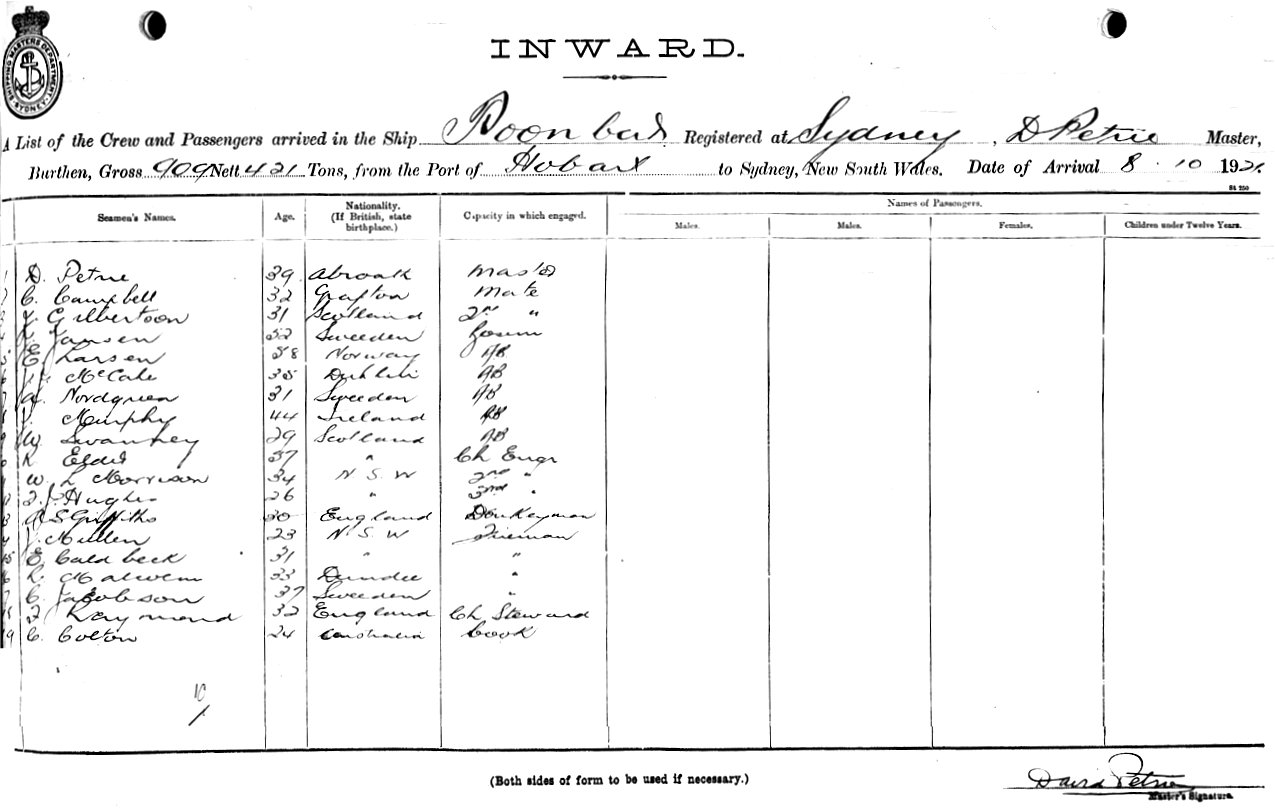 SHIPPING MASTERS DEPARTMENT SYDNEY
INWARD.
A List of the Crew and Passengers arrived in the Ship Roonbar Registered at Sydney, D Petrie Master,
Burthen, Gross 909 Nett 421 Tons, from the Port of Hobart to Sydney, New South Wales. Date of Arrival 8 . 10 192
St 250
Seamen's Names. Age. Nationality. (If British, state birthplace.) Capacity in which engaged. Names of Passengers.
Males. Males. Females. Children under Twelve Years.
1 D. Petrie 39 Master
2 C. Campbell 32 Grafton Mate
3 J. Gilbertson 31 Scotland 2nd "
4 Jansen 32 Sweeden
5 E. Larsen 38 Norway AB
6 McCabe 35 Dublin AB
7 A. Nordgreen 31 Sweeden AB
8 J. Murphy 44 Ireland AB
9 W Swanney 29 Scotland AB
R 37 " Ch Engr
W L Morrison 34 N. S. W 2nd "
Hughes 26 " 3rd "
S Griffiths 30 England Donkeyman
J. Mullen 23 N. S. W Fireman
15 E. Caldbeck 31 " "
33 Dundee "
C. Jacobson 37 Sweeden "
Raymond 32 England Ch Steward
19 C. Colton 24 Australia Cook
10
(Both sides of form to be used if necessary.)
David Petrie
Master's Signature.